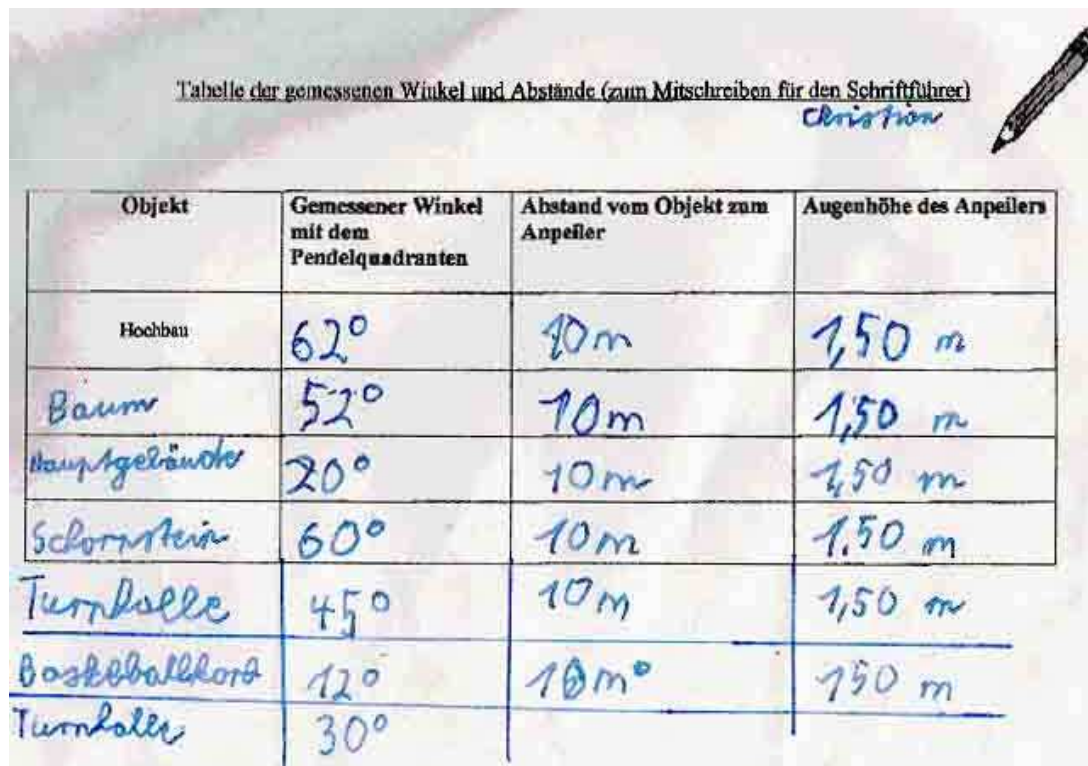 Tabelle der gemessenen Winkel und Abstände (zum Mitschreiben für den Schriftführer)
Christian
Objekt Gemessener Winkel mit dem Pendelquadranten Abstand vom Objekt zum Anpeiler Augenhöhe des Anpeilers
Hochbau 62° 10m 1,50 m
Baum 52° 10m 1,50 m
Hauptgebäude 20° 10m 1,50 m
Schornstein 60° 10m 1.50 m
Turnhalle 45° 10m 1,50 m
12° 10m° 150 m
Turnhalle 30°